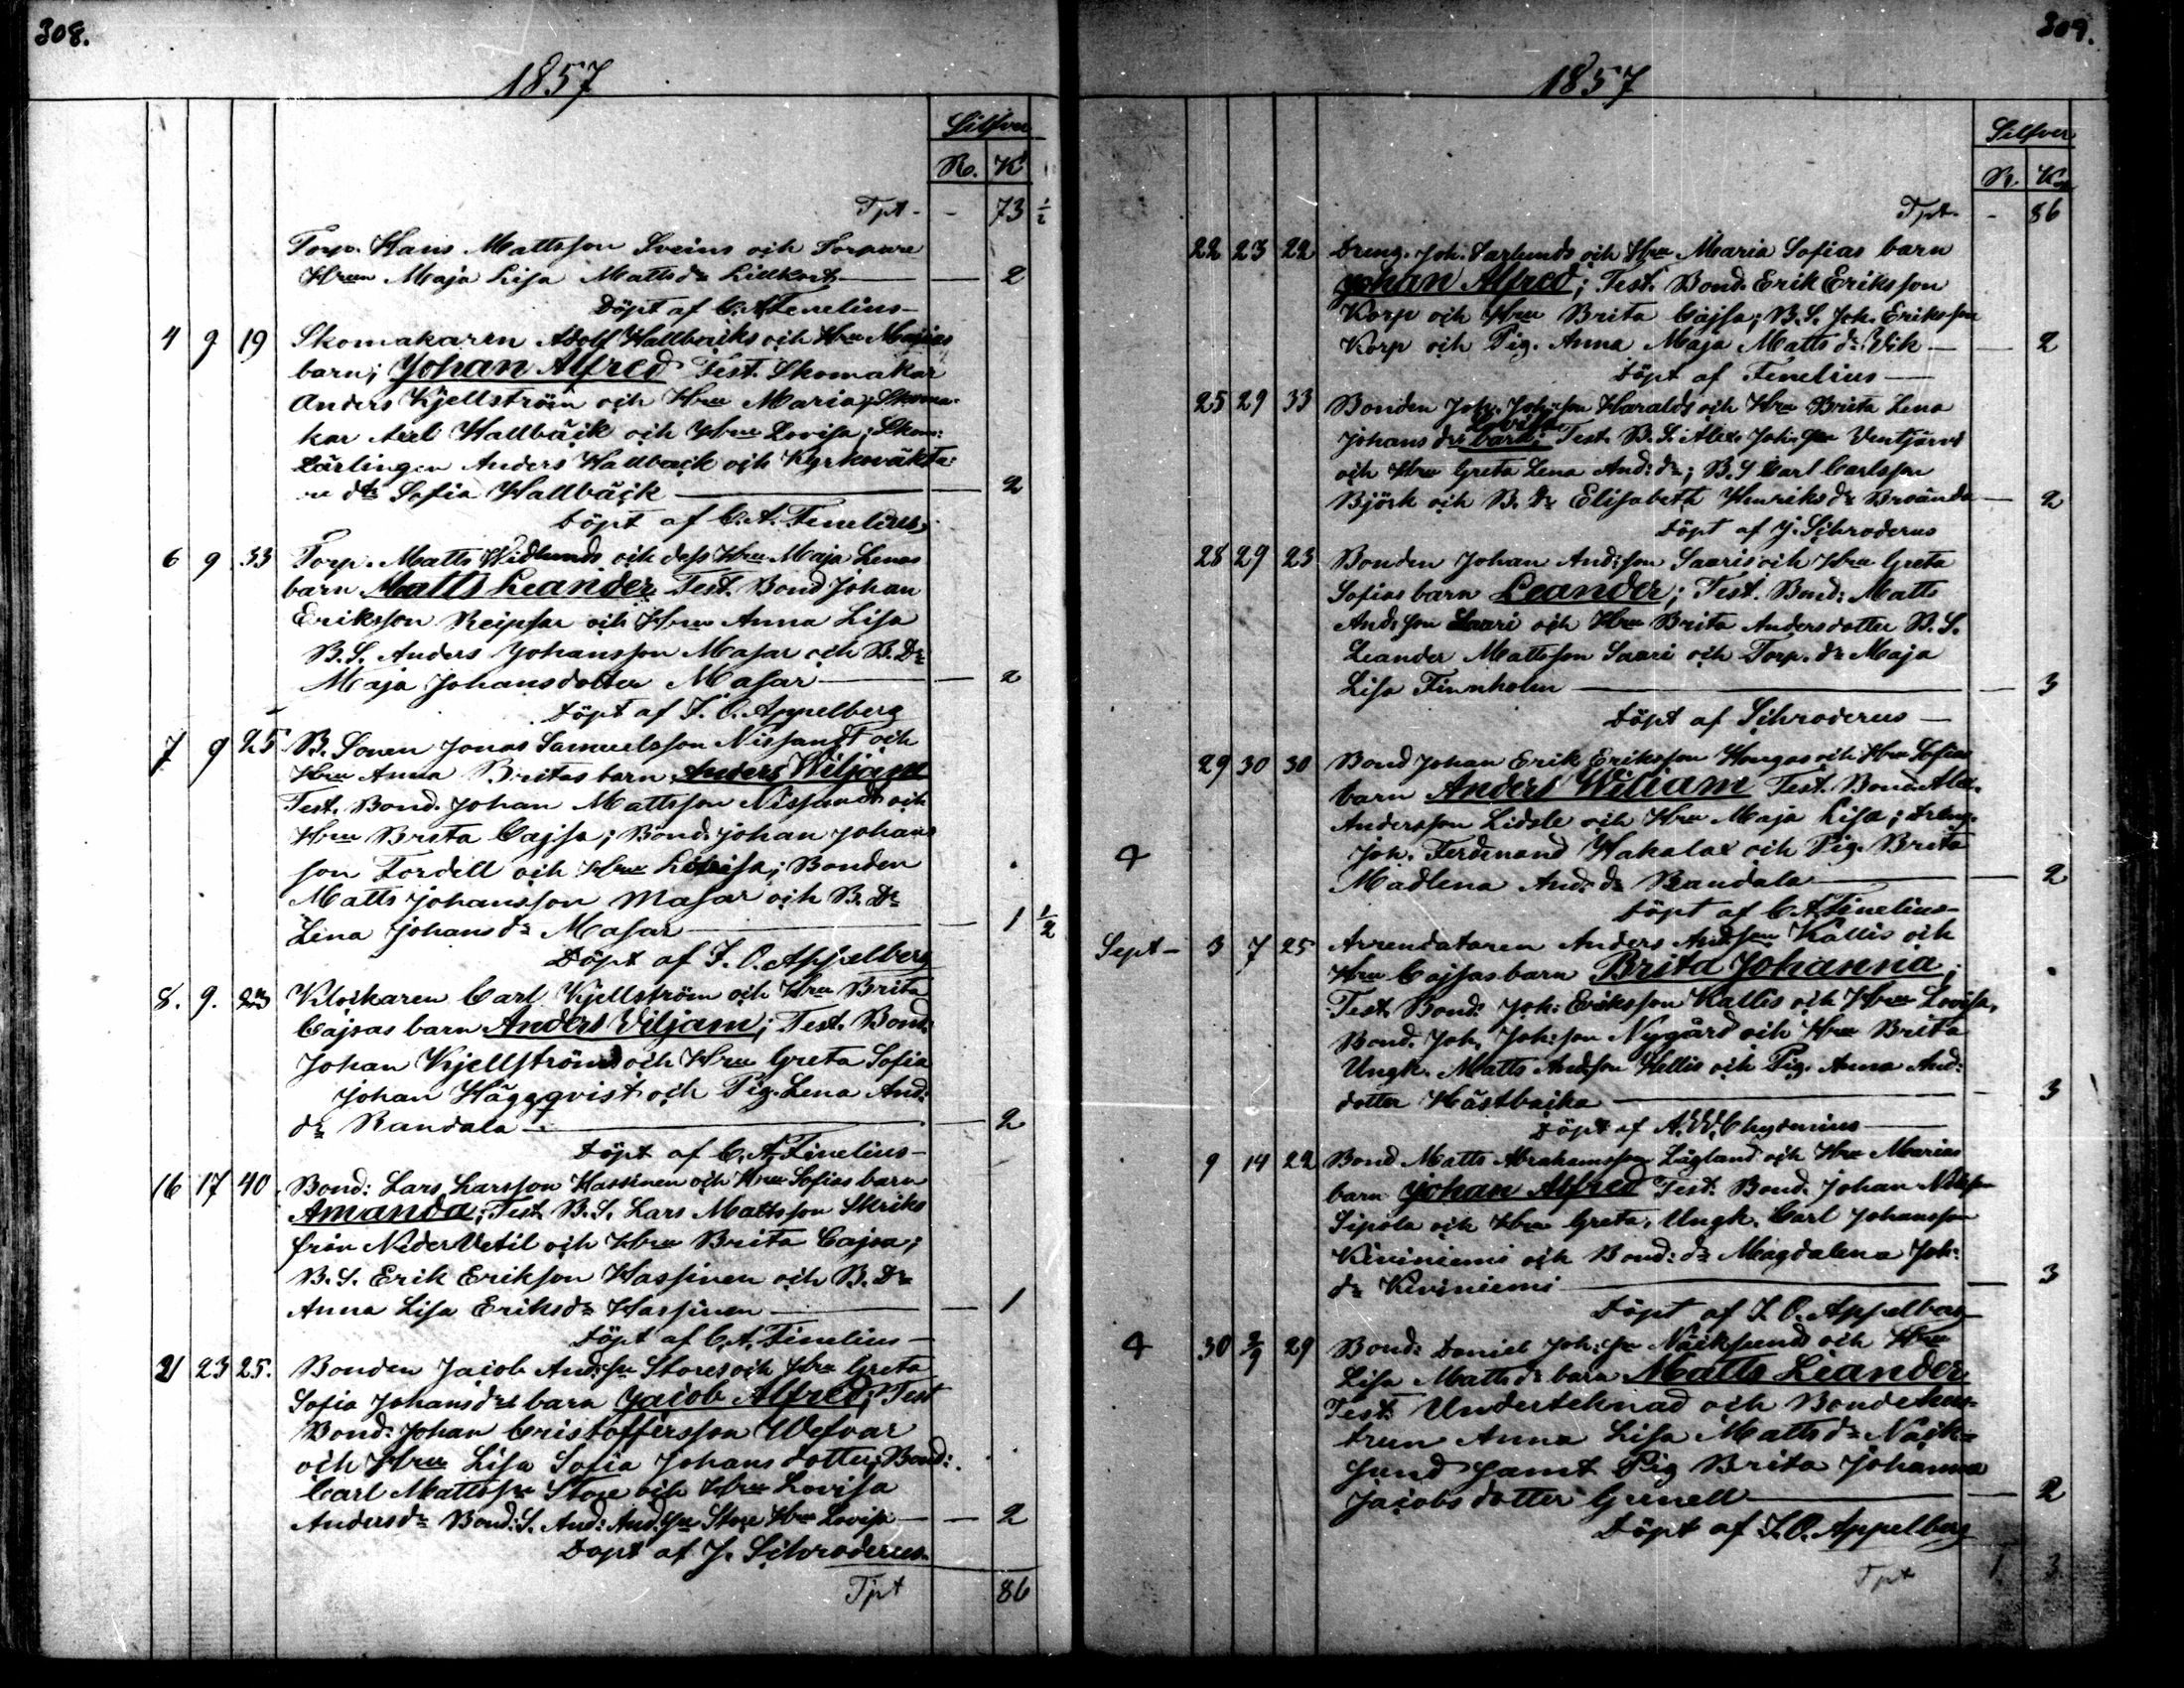 308.
1857
Silfver
Ro. K
Tpt - - 73 1/2
Torp. Hans Mattsson Sveins och Torpare
Hrun Maja Lisa Matts dr Lillkort — — 2
Döpt af C. A. Fenelius —
4 9 19 Skomakaren Adolf Hallbäcks och Hru Majas
barn; Johan Alfred Test. Skomakar
Anders Kjellström och Hru Maria; Skoma-
kar Axel Hallbäck och Hru Lovisa; Skom:
Lärlingen Anders Hallbäck och Kyrkoväkta:
re dtr Sofia Hallbäck — — 2
Döpt af C. A. Fenelius,
6 9 33 Torp. Matts Widlunds och dess Hru Maja Lenas
barn Matts Leander Test. Bond Johan
Eriksson Reipsar och Hru Anna Lisa
B. S. Anders Johansson Masar och B. Dr
Maja Johansdotter Masar — — 2
Döpt af F. O. Appelberg
7 9 25 B. Sonen Jonas Samuelsson Nissandt och
Hru Anna Britas barn Anders Wiljam
Test. Bond. Johan Mattsson Nissandt och
Hru Brita Cajsa; Bond. Johan Johans
son Fordell och Hru Lovisa; Bonden
Matts Johansson Masar och B. Dr
Lena Johans dr Masar — — 1 1/2
Döpt af F. O. Appelberg
8. 9. Klockaren Carl Kjellström och Hru Brita
Cajsas barn Anders Viljam; Test. Bond.
Johan Kjellström och Hru Greta Sofia
Johan Häggqvist och Pig. Lena And:
dr Randala — — 2
Döpt af C. A. Fenelius —
16 17 40 Bond: Lars Larsson Hassinen och Hru Sofias barn
Amanda; Test. B. S. Lars Mattsson Skriko
från Neder Vetil och Hru Brita Cajsa;
B. S. Erik Erikson Hassinen och B. Dr
Anna Lisa Eriksdr Hassinen — — 1
Döpt af C. A. Fenelius —
21 23 25. Bonden Jacob And:sn Stores och Hru Greta
Sofia Johansdrs barn Jacob Alfred; Test
Bond: Johan Cristoffersson Wefvar
och Hru Lisa Sofia Johans dotter; Bond:
Carl Mattssn Store och Hru Lovisa
Andersdr Bond: S. And: And:sn Store Hru Lovisa — — 2
Döpt af J. Schroderus.
Tpt 86
309.
1857
Silfver
R. Kop
Tpt. - 86
22 23 22 Dreng. Joh. Sarlunds och Hru Maria Sofias barn
Johan Alfred; Test. Bond. Erik Eriksson
Korp och Hru Brita Cajsa; B. S. Joh. Eriksson
Korp och Pig. Anna Maja Matts dr Vik — — 2
Döpt af Fenelius —
25 29 33 Bonden Joh. Joh:son Haralds och Hru Brita Lena
Johans drs barn; Lovisa Test. B. S. Alex. Joh:son Ventjärvi
och Hru Greta Lena And: dr; B. S Carl Carlsson
Björk och B. Dr Elisabeth Henriks dr Broända — 2
Döpt af J. Schroderus
28 29 23 Bonden Johan And:son Saaris och Hru Greta
Sofias barn Leander; Test. Bond: Matts
And: son Saari och Hru Brita Andersdotter B. S.
Leander Mattsson Saari och Torp. dr Maja
Lisa Finnholm — — 3
Döpt af Schroderus —
29 30 30 Bond Johan Erik Eriksson Hongas och Hru Sofias
barn Anders Wiliam Test. Bond. Alex.
Andersson Lidsle och Hru Maja Lisa; dreng.
4 Joh. Ferdinand Hakalax och Pig. Brita
Madlena And: dr Randala — — 2
Döpt af C. A. Fenelius —
Sept - 3 7 25 Arrendatoren Anders And:son Kallis och
Hru Cajsas barn Brita Johanna;
Test. Bond: Joh: Eriksson Kallis och Hru Lovisa,
Bond. Joh. Joh:son Nygård och Hru Brita
Ungk. Matts And:son Hellis och Pig. Anna And:
dotter Hästbacka — — 3
Döpt af A. W. Chydenius —
9 14 22 Bond. Matts Abrahamsson Lågland och Hru Marias
barn Johan Alfred Test. Bond. Johan Nilsson
Sipola och Hru Greta, Ungk. Carl Johansson
Kiviniemi och Bond: dr Magdalena Joh:
dr Kiviniemi — — 3
Döpt af F. O. Appelberg
4 30 2/9 29 Bond: Daniel Joh:sn Näcksund och Hru
Lisa Matts dr barn Matts Leander
Test. Undertecknad och Bondehus-
trun Anna Lisa Matts dr Näck-
sund samt Pig Brita Johanna
Jacobs dotter Grenell — — 2
Döpt af F. O. Appelberg
Tpt 1 3